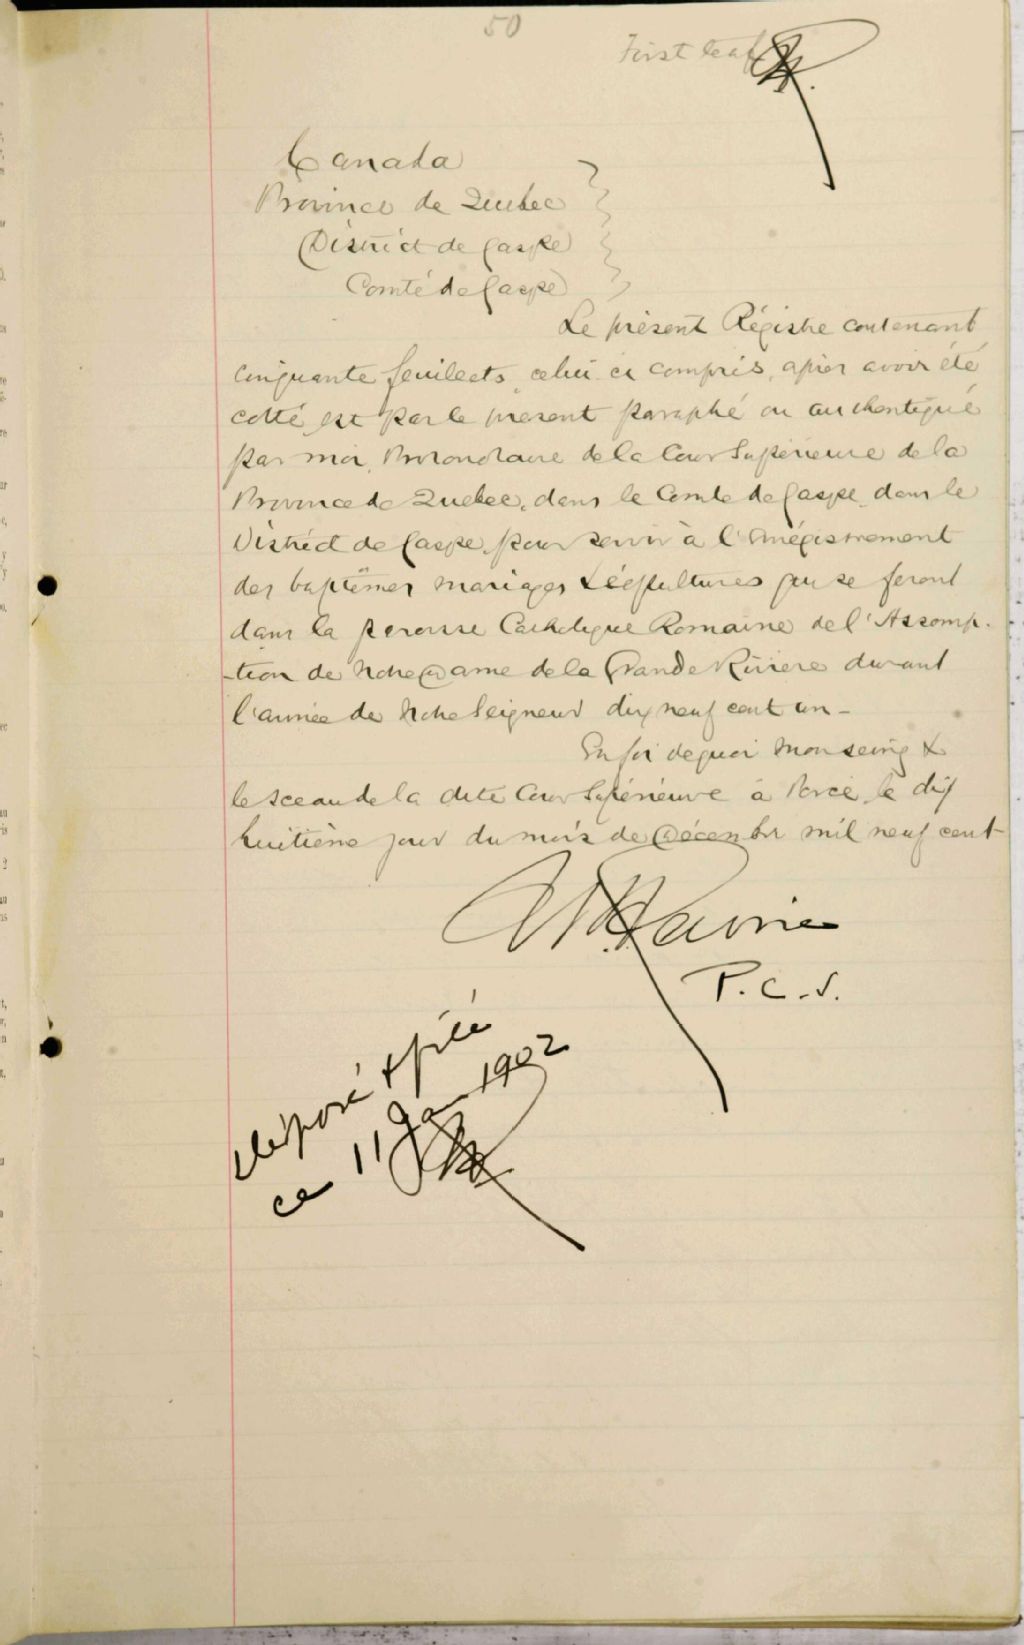 50
First leaf
Canada
Province de Quebec
District de Gaspe
Comté de Gaspe
Le présent Régistre contenant
cinquante feuillets, celui ci compris, après avoir été
cotté, est par le présent paraphé ou authentiqué
par moi, Protonotaire de la Cour Supérieure de la
Province de Quebec, dans le Comte de Gaspe, dans le
District de Gaspe, pour servir à l'Enrégistrement
des baptêmes mariages & sépultures qui se feront
dans la paroisse Catholique Romaine de l'Assomp-
-tion de Notre Dame de la Grande Rivière durant
l'année de Notre Seigneur dix neuf cent un -
En foi de quoi mon seing &
le sceau de la dite Cour Supérieure à Percé le dix
huitième jour du mois de Décembre mil neuf cent
P. C. S.
déposé & filé
ce 11 Jan 1902